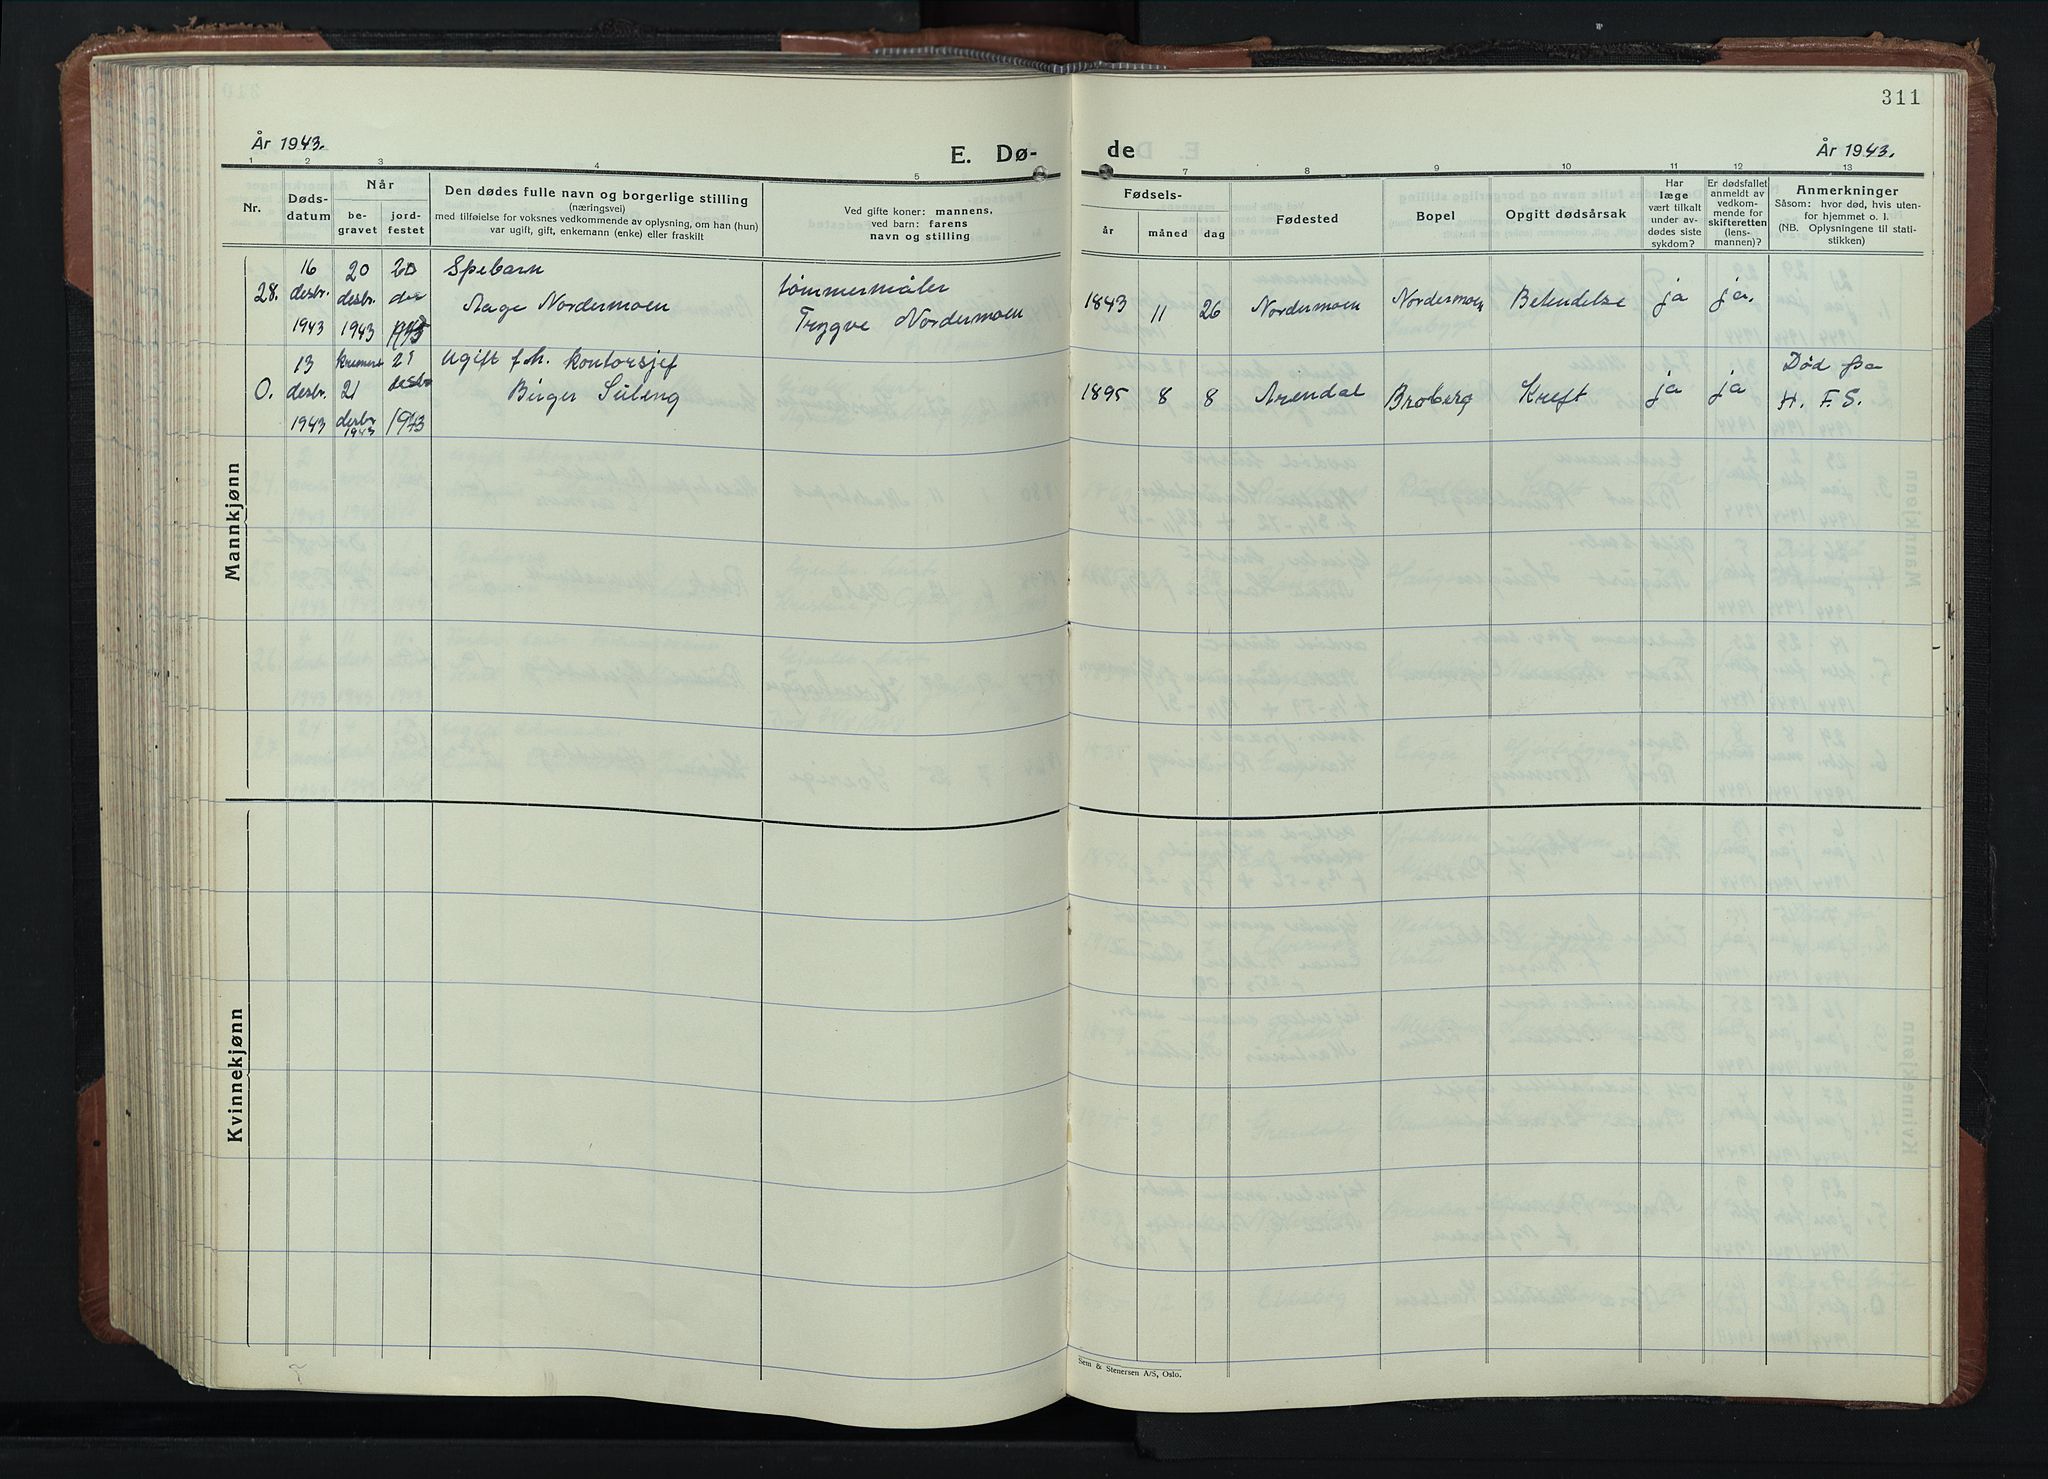 311
År 1943.
E. Dø-
de
År 1943.
1 2 3 4 5 7 8 9 10 11 12 13
Nr.
Døds-
datum
Når
be-
gravet
jord-
festet
Den dødes fulle navn og borgerlige stilling
(næringsvei)
med tilføielse for voksnes vedkommende av oplysning, om han (hun)
var ugift, gift, enkemann (enke) eller fraskilt
Ved gifte koner: mannens,
ved barn: farens
navn og stilling
Fødsels-
år måned dag
Fødested
Bopel
Opgitt dødsårsak
Har
læge
vært tilkalt
under av-
dødes siste
sykdom?
Er dødsfallet
anmeldt av
vedkom-
mende for
skifteretten
(lens-
mannen)?
Anmerkninger
Såsom: hvor død, hvis uten-
for hjemmet o. l.
(NB. Oplysningene til stati-
stikken)
Mannkjønn
28.
16
desbr.
1943
20
desbr.
1943
20
des
1943
Spebarn
Aage Nordermoen
tømmermåler
Trygve Nordermoen
1843 11 26 Nordermoen Nordermoen Betendelse ja ja.
0.
13
desbr.
1943
21
desbr
1943
21
desbr
1943
Ugift fh. kontorsjef
Birger
1895 8 8 Arendal Broberg Kreft ja ja
Død på
H. F. S.
Kvinnekjønn
Sem & Stenersen A/S, Oslo.